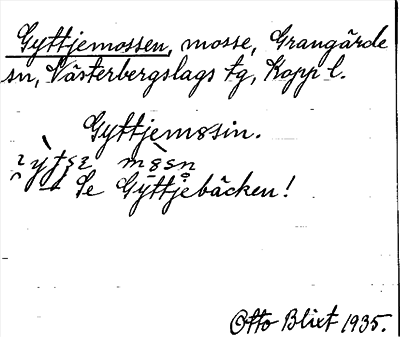 Gyttjemossen, mosse, Grangärde
sn, Västerbergslags tg, Kopp l.
Gyttjemosin.
Se Gyttjebäcken!
Otto Blixt 1935.